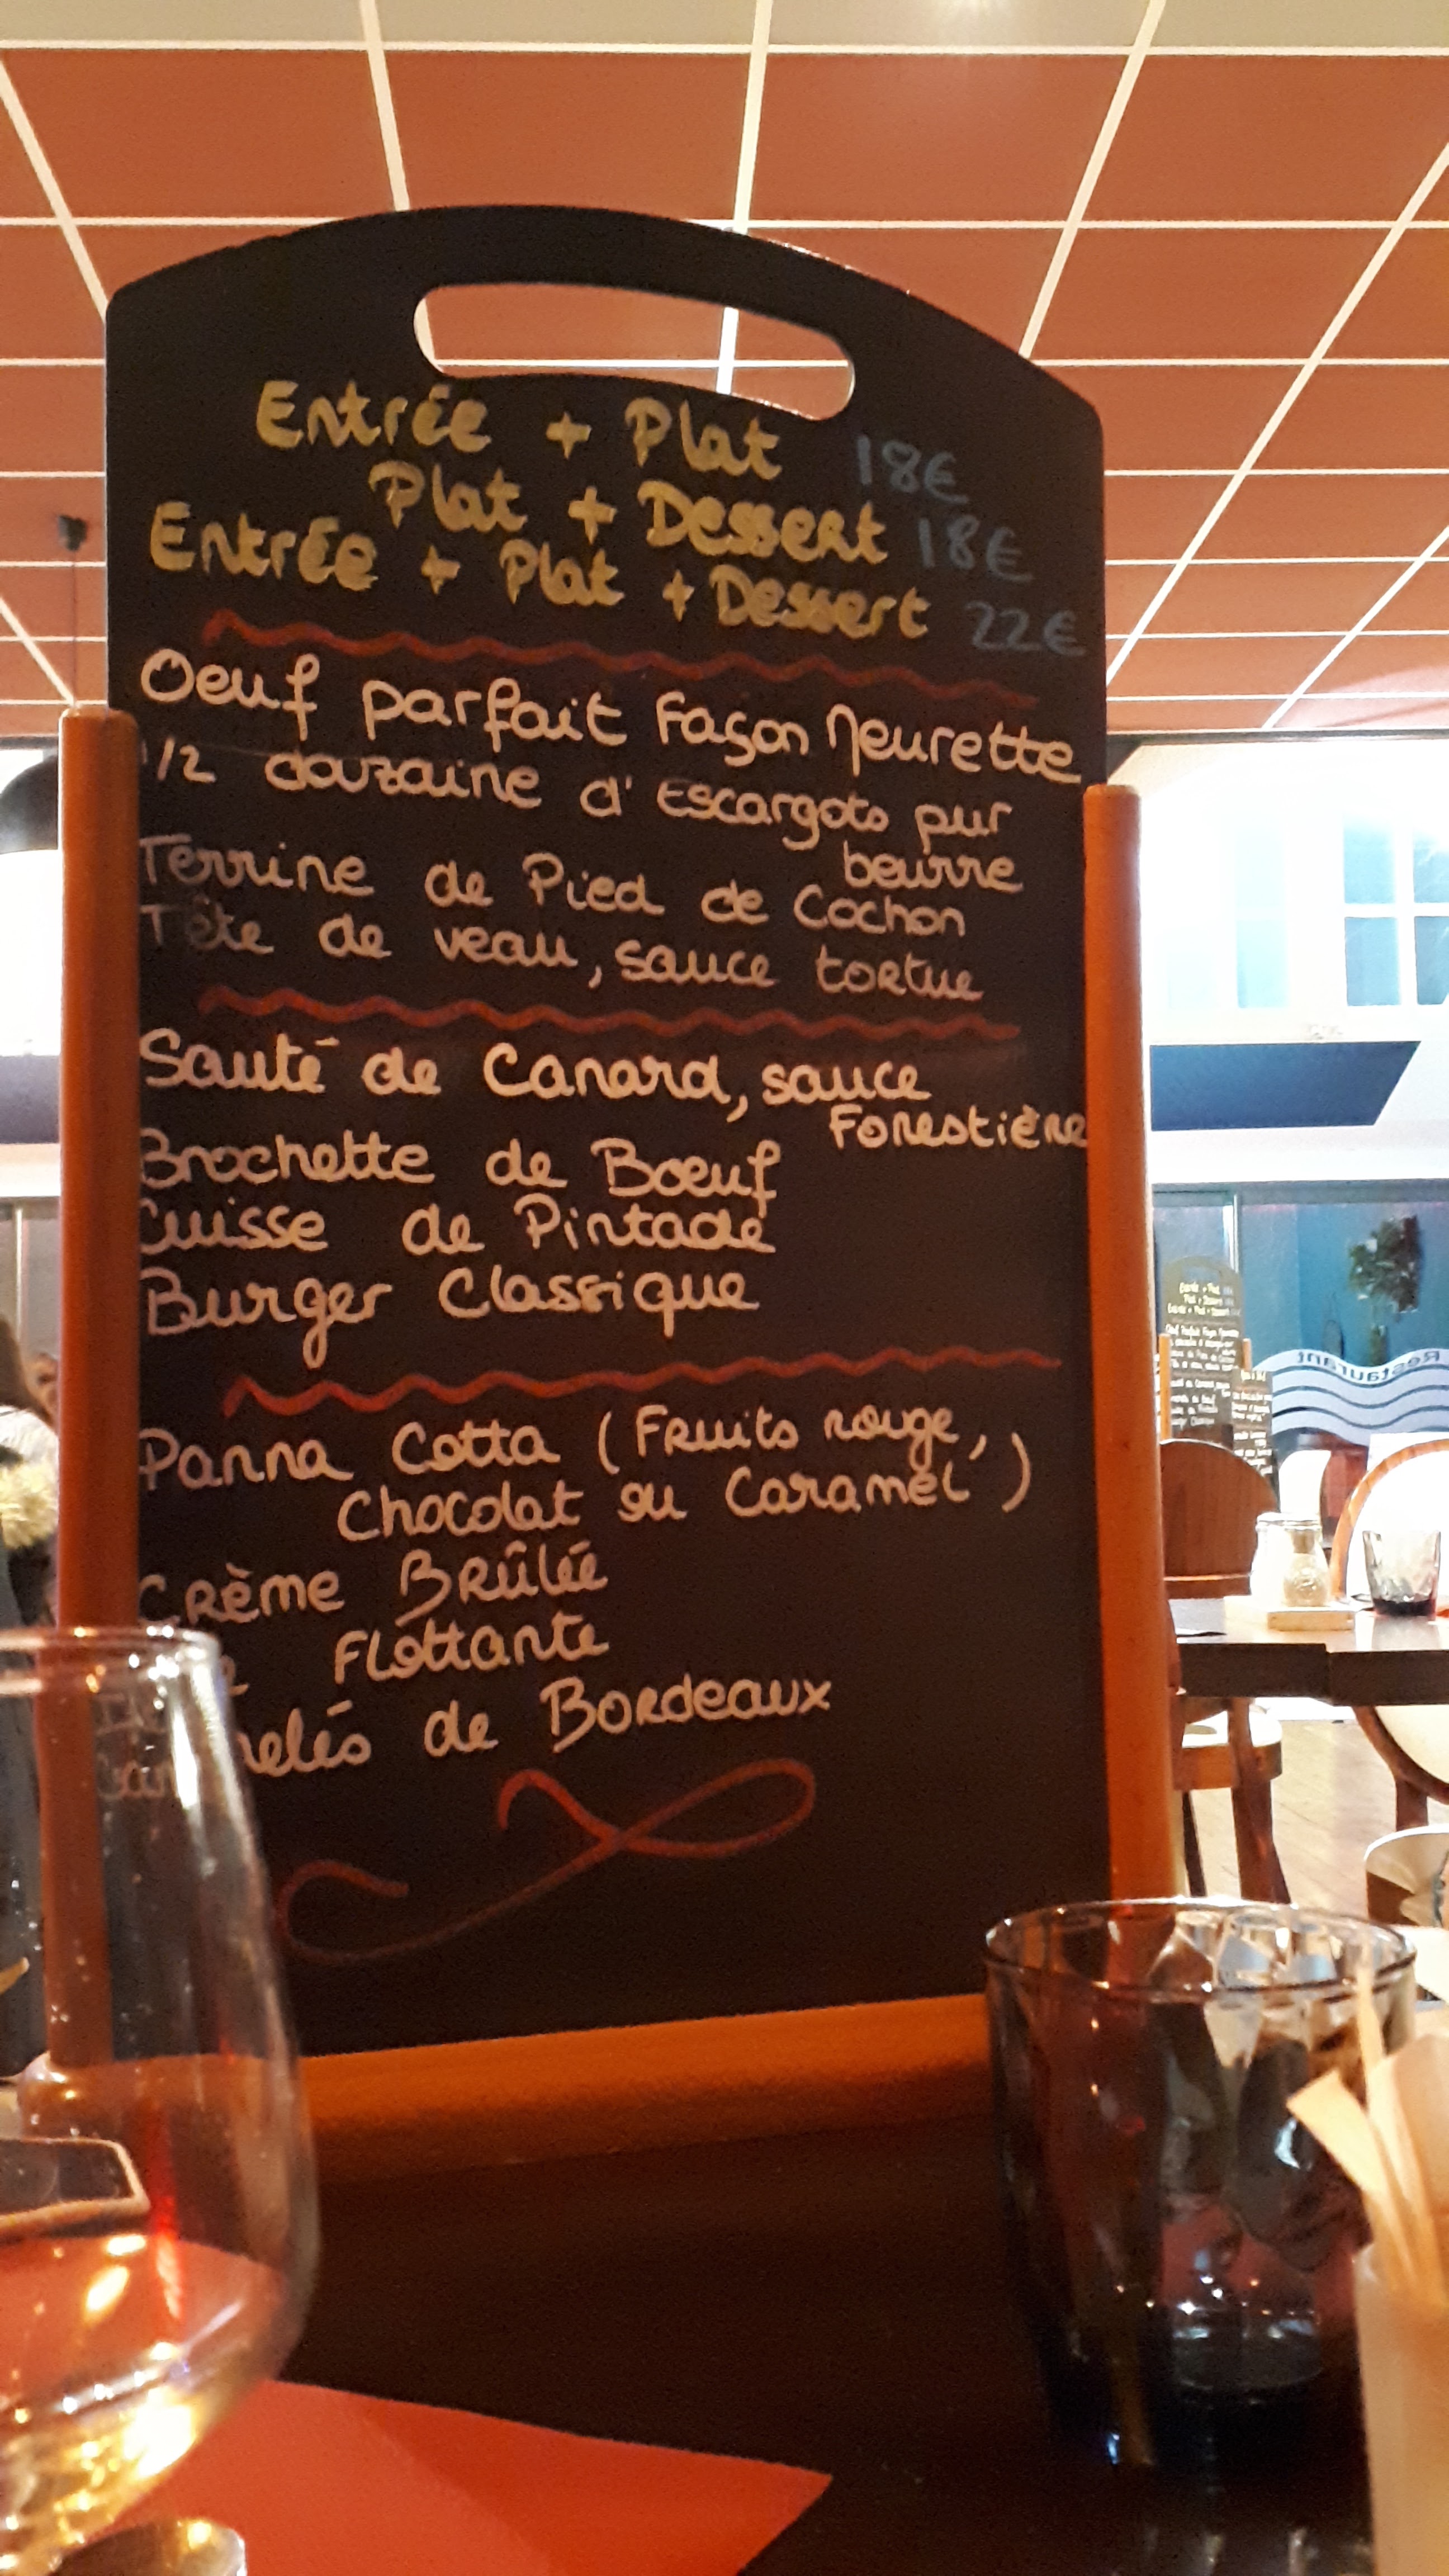 Entrée + Plat 18€
Plat + Dessert 18€
Entrée + Plat + Dessert 22€
Oeuf parfait Façon Meurette
1/2 douzaine d'Escargots pur
beurre
Terrine de Pied de Cochon
Tête de veau, sauce tortue
Sauté de Canard, sauce
Forestière
Brochette de Boeuf
Cuisse de Pintade
Burger Classique
Panna Cotta (Fruits rouge,
Chocolat ou Caramel)
Crème Brûlée
Flottante
de Bordeaux
Restaurant